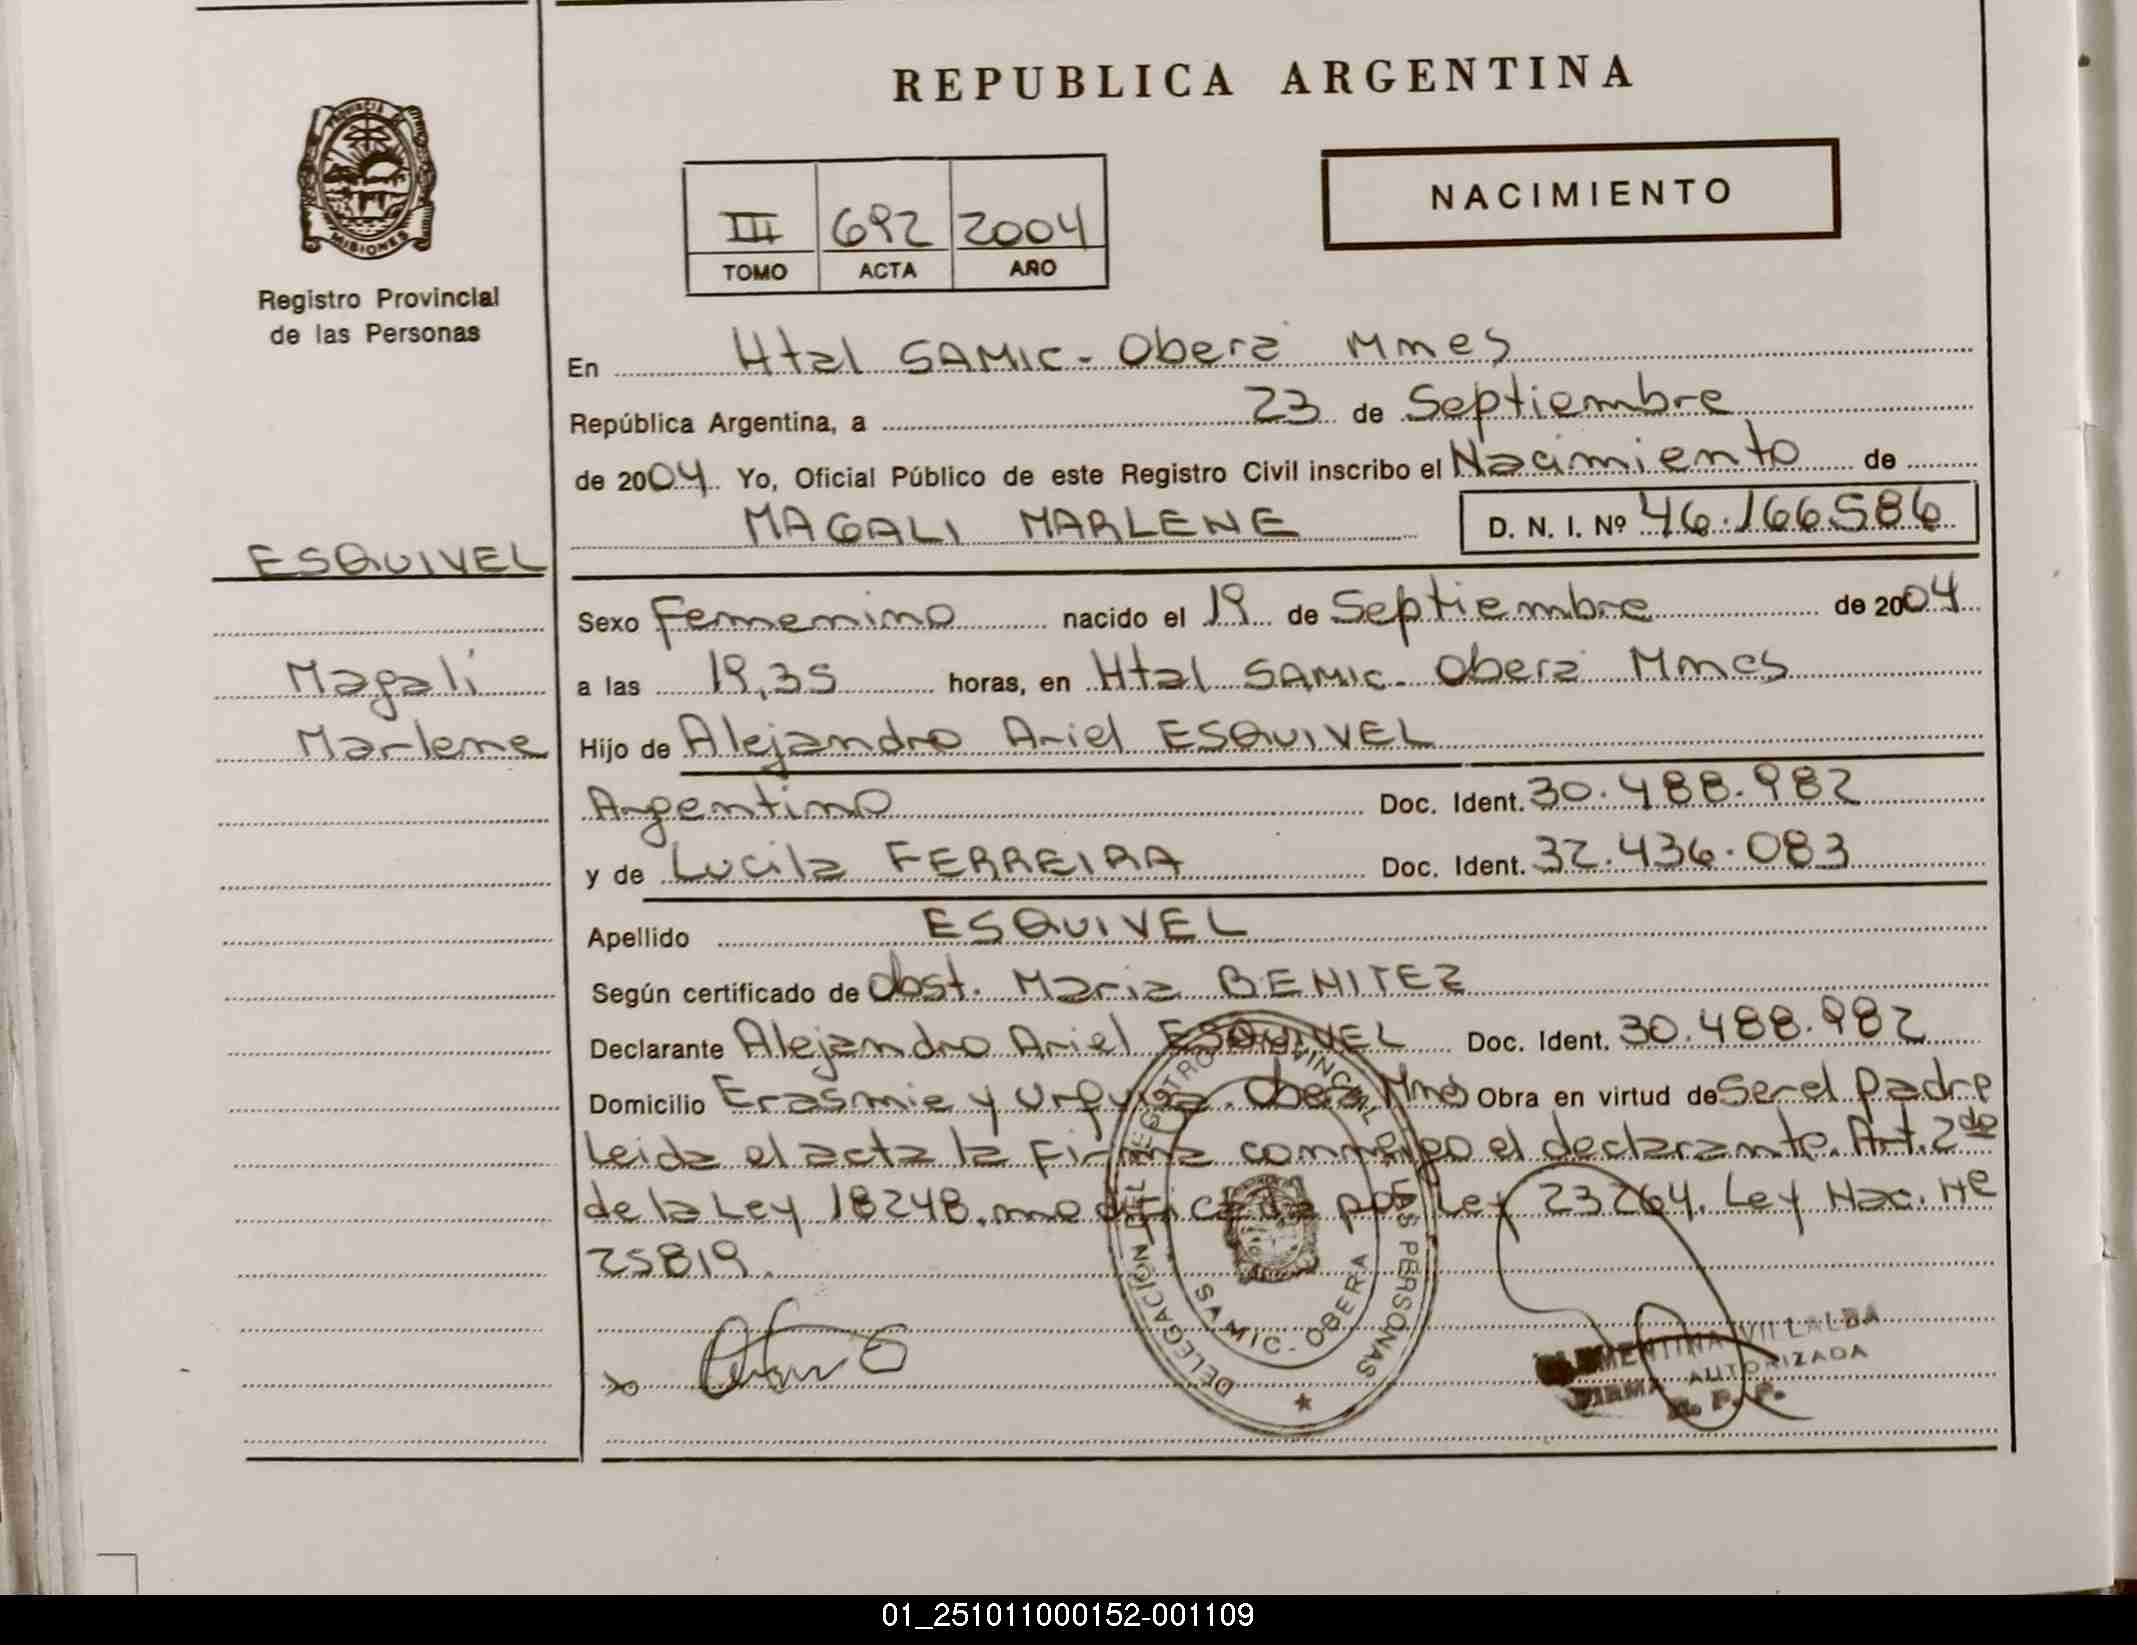 REPUBLICA ARGENTINA
PROVINCIA DE
MISIONES
Registro Provincial
de las Personas
NACIMIENTO
III 692 2004
TOMO ACTA AÑO
En Htal SAMIC - Oberá Mnes
República Argentina, a 23 de Septiembre
de 2004 Yo, Oficial Público de este Registro Civil inscribo el Nacimiento de
MAGALI MARLENE D. N. I. Nº 46.166586
ESQUIVEL
Magali
Marlene
Sexo Femenino nacido el 19 de Septiembre de 2004
a las 19,35 horas, en Htal SAMIC - Oberá Mnes
Hijo de Alejandro Ariel ESQUIVEL
Argentino Doc. Ident. 30.488.982
y de Lucila FERREIRA Doc. Ident. 32.436.083
Apellido ESQUIVEL
Según certificado de Obst. Maria BENITEZ
Declarante Alejandro Ariel ESQUIVEL Doc. Ident. 30.488.982
Domicilio Erasmie y Oberá Mnes Obra en virtud de Ser el padre
Leida el acta la Firma conmigo el declarante. Art. 2do
de la Ley 18248. modificada por Ley 23264. Ley Nac. Nº
25819.
DELEGACION DEL REGISTRO PROVINCIAL DE LAS PERSONAS
SAMIC - OBERA
CLEMENTINA VILLALBA
FIRMA AUTORIZADA
R. P. P.
01_251011000152-001109